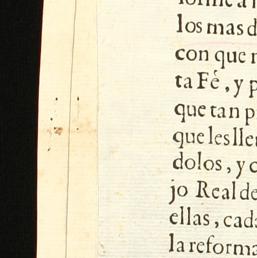 los mas d
con que
ta Fè, y p
que tan p
que les lle
dolos, y c
jo Real de
ellas, cad
la reforma